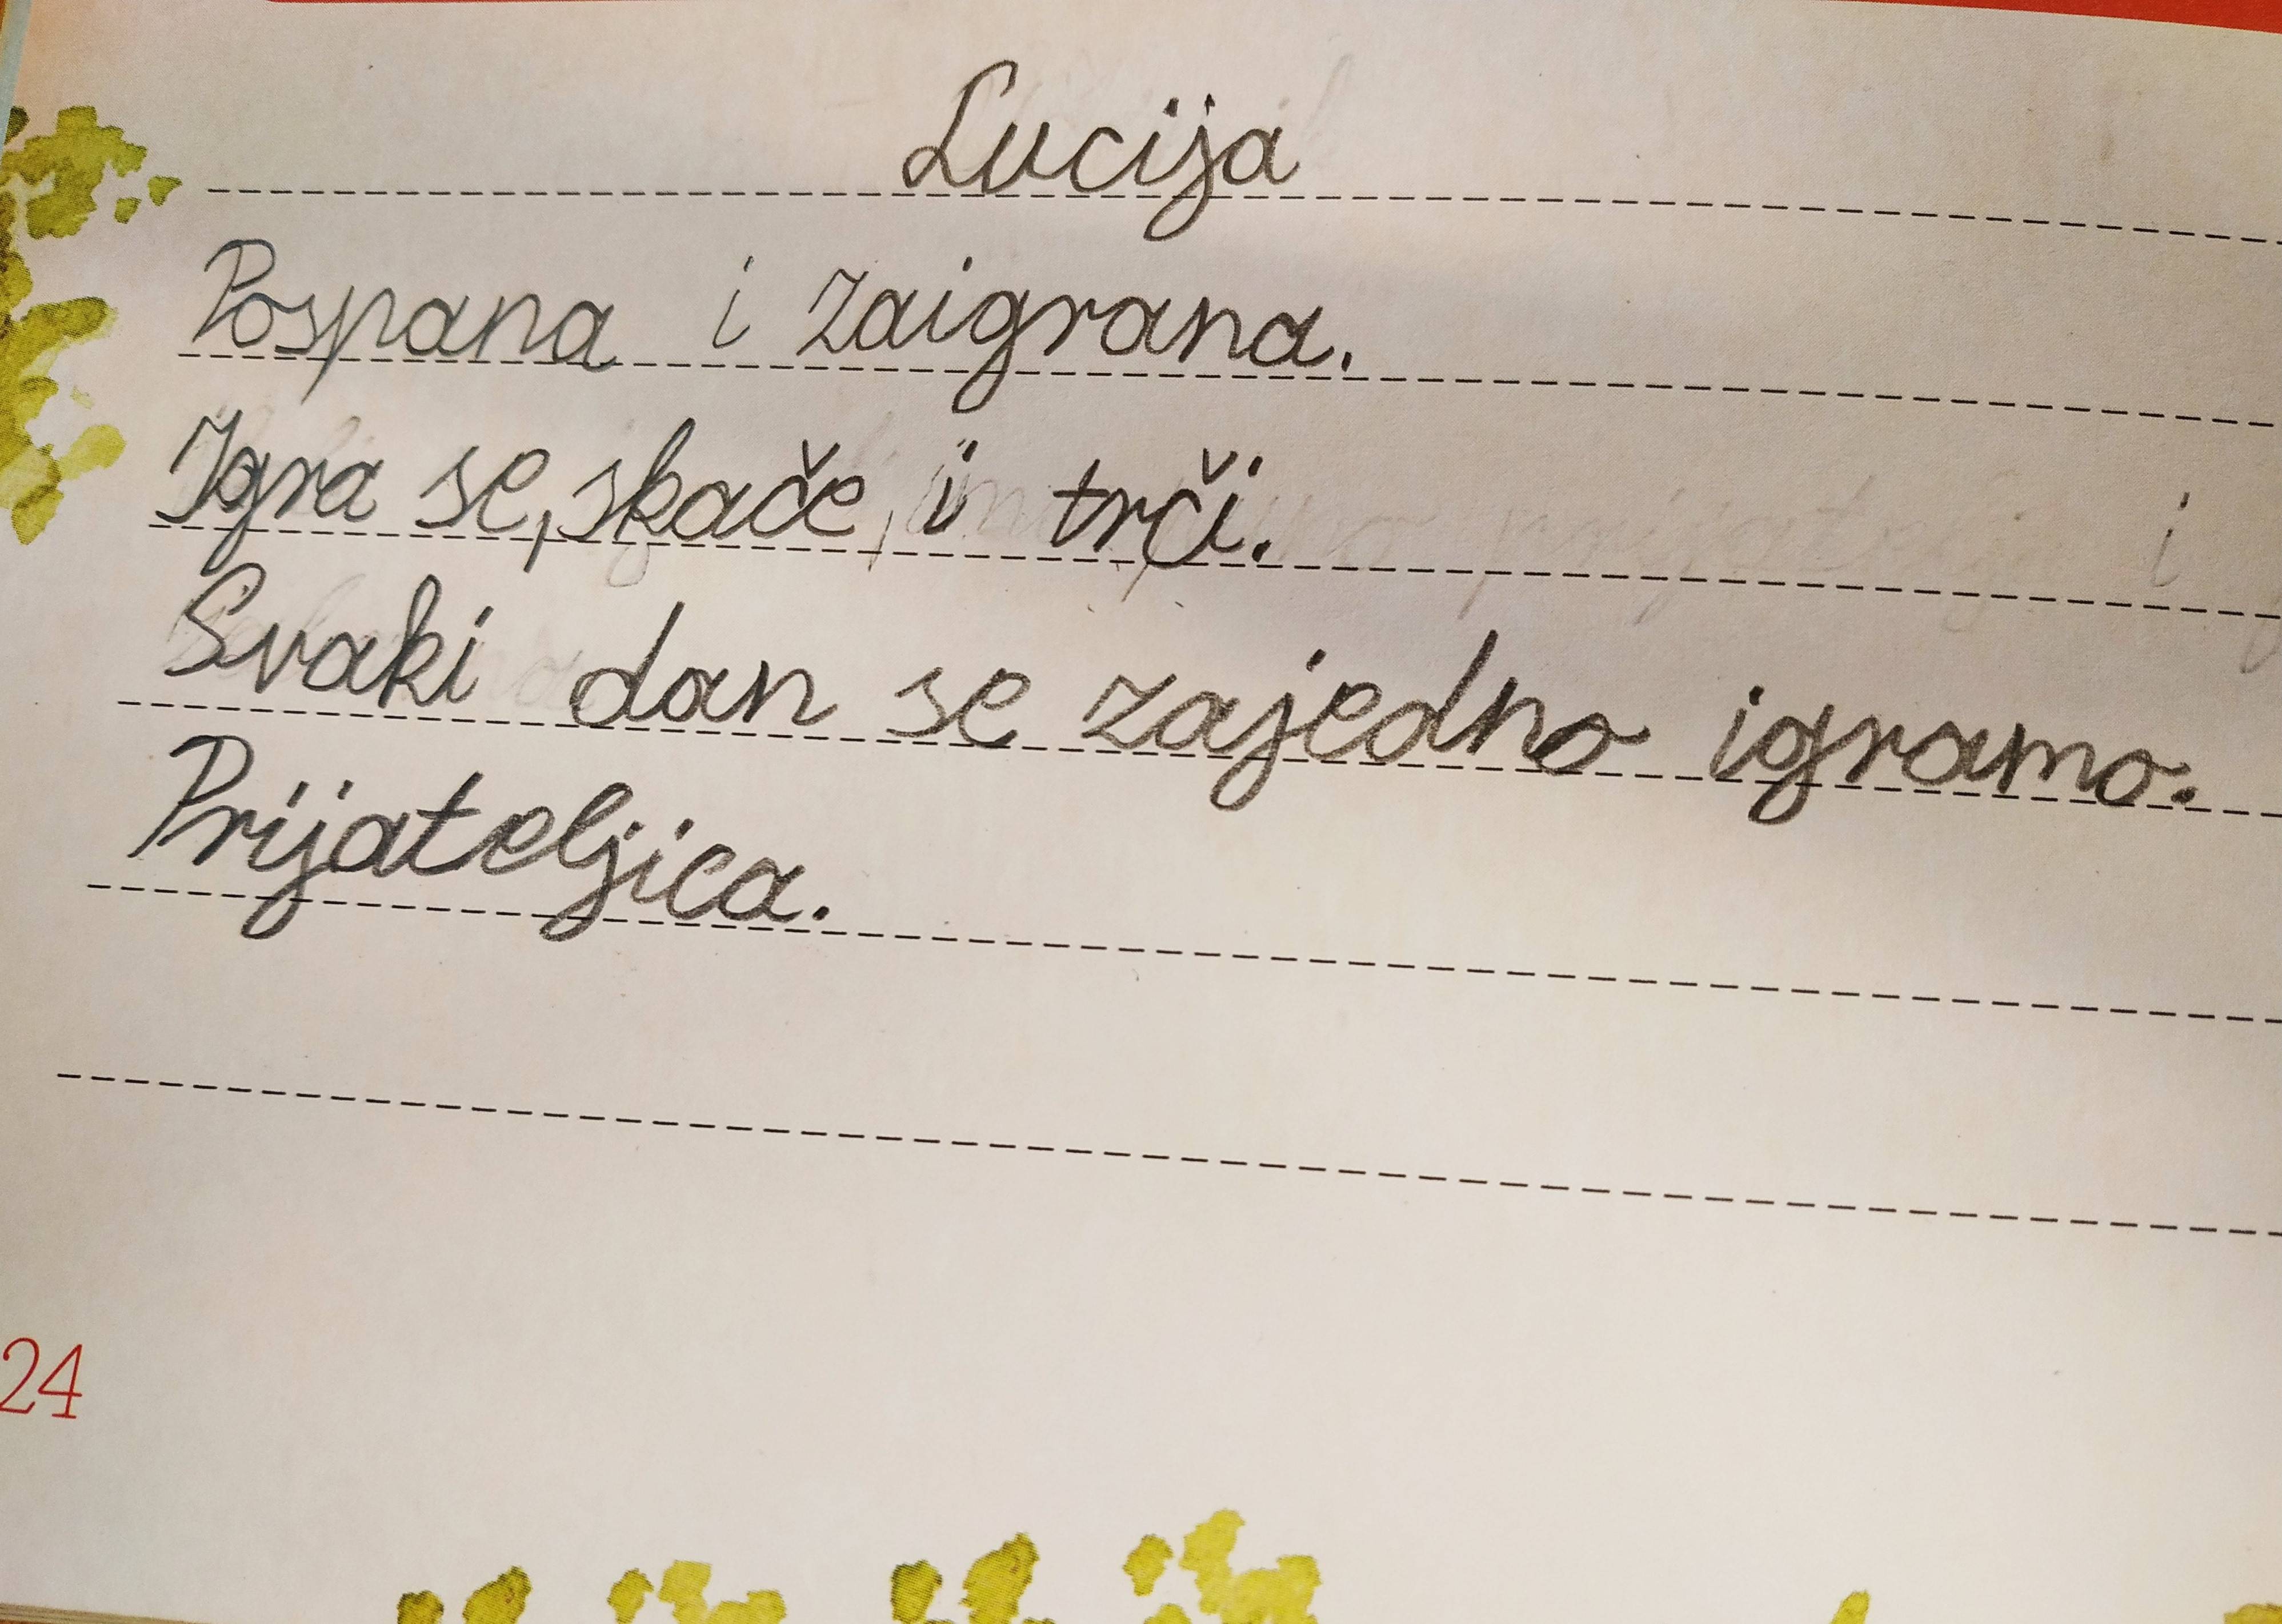 Lucija
Pospana i zaigrana.
Igra se, skače, i trči.
Svaki dan se zajedno igramo.
Prijateljica.
24